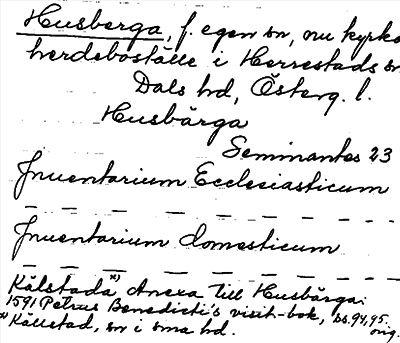 Husberga, f. egen sn, nu kyrko
herdeboställe i Herrestads sn
Dals hd, Österg. l.
Husbärga
Seminantes 23
Inuentarium Ecclesiasticum
Inuentarium domesticum
Kälstada *) Anexa till Husbärga:
1591 Petrus Benedicti's visit-bok, ss. 94, 95.
orig.
*) Källstad, sn i sma hd.